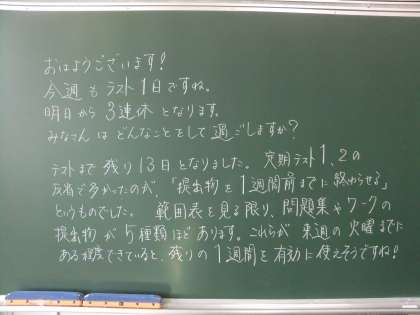 おはようございます!
今週もラスト1日ですね。
明日から3連休となります。
みなさんはどんなことをして過ごしますか?
テストまで残り13日となりました。定期テスト1、2の
反省で多かったのが、「提出物を1週間前までに終わらせる」
というものでした。範囲表を見る限り、問題集やワークの
提出物が5種類ほどあります。これらが来週の火曜までに
ある程度できていると、残りの1週間を有効に使えそうですね!